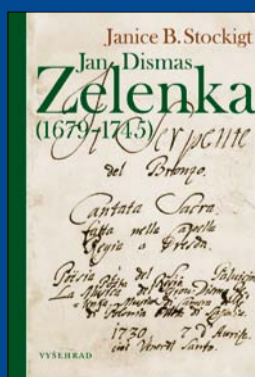 Janice B. Stockigt
Jan Dismas
Zelenka
(1679–1745)
Il Serpente
del Bronzo.
Cantata Sacra.
fatta nella Capella
Regia a Dresda.
Poesia
La Musica del
di Polonia
1730.
Venerdi Santo.
VYŠEHRAD